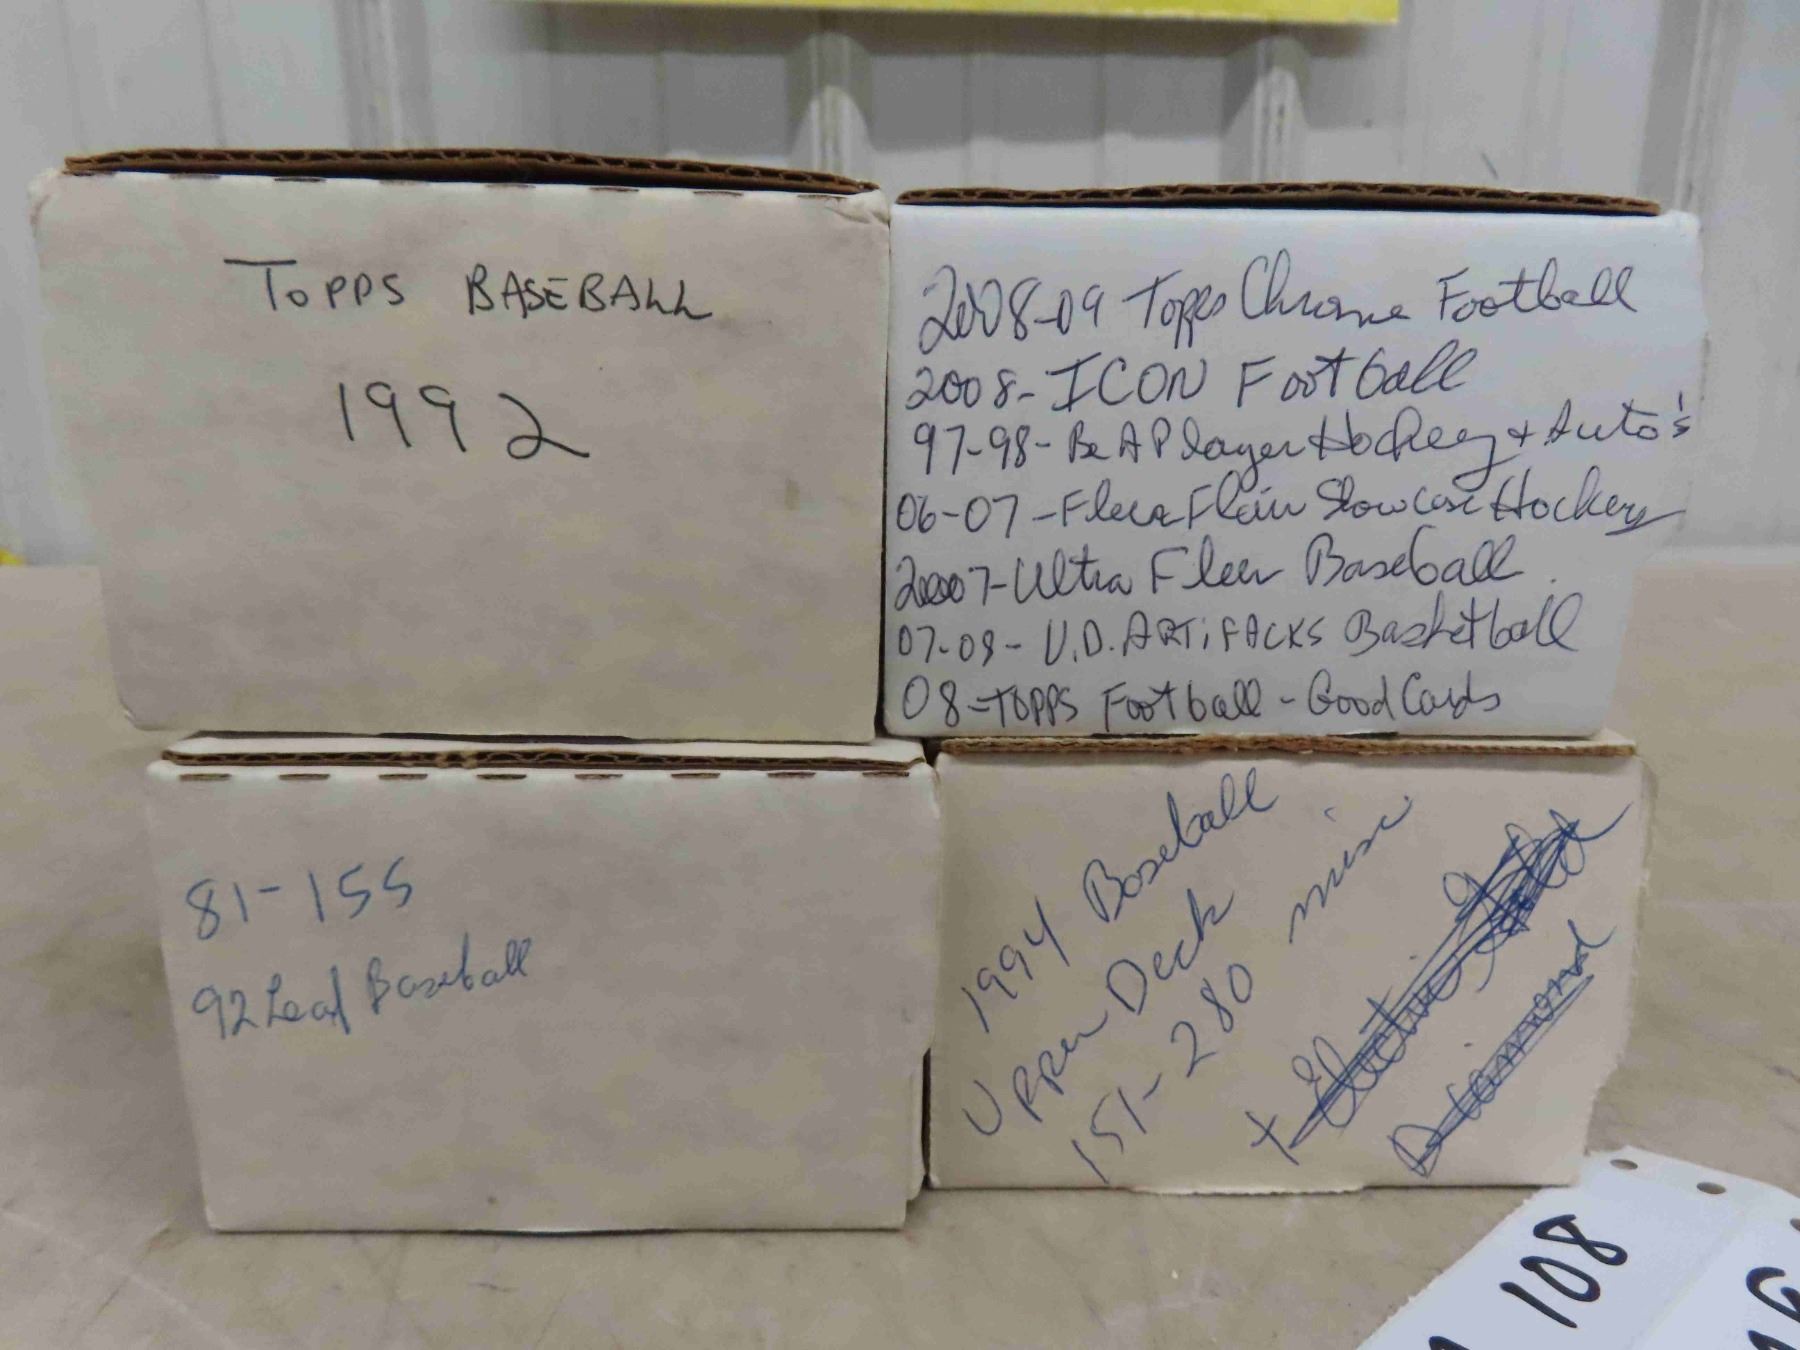 TOPPS BASEBALL
1992
2008-09 Topps Chrome Football
2008- ICON Football
97-98- Be A Player Hockey + Auto's
06-07 - Fleer Flair Showcase Hockey
2007- Ultra Fleer Baseball
07-08- U.D. ARTiFACKS Basketball
08-TOPPS Football - Good Cards
81-155
92 Leaf Baseball
1994 Baseball
Upper Deck
151-280 misc
+ Electric
Diamond
108